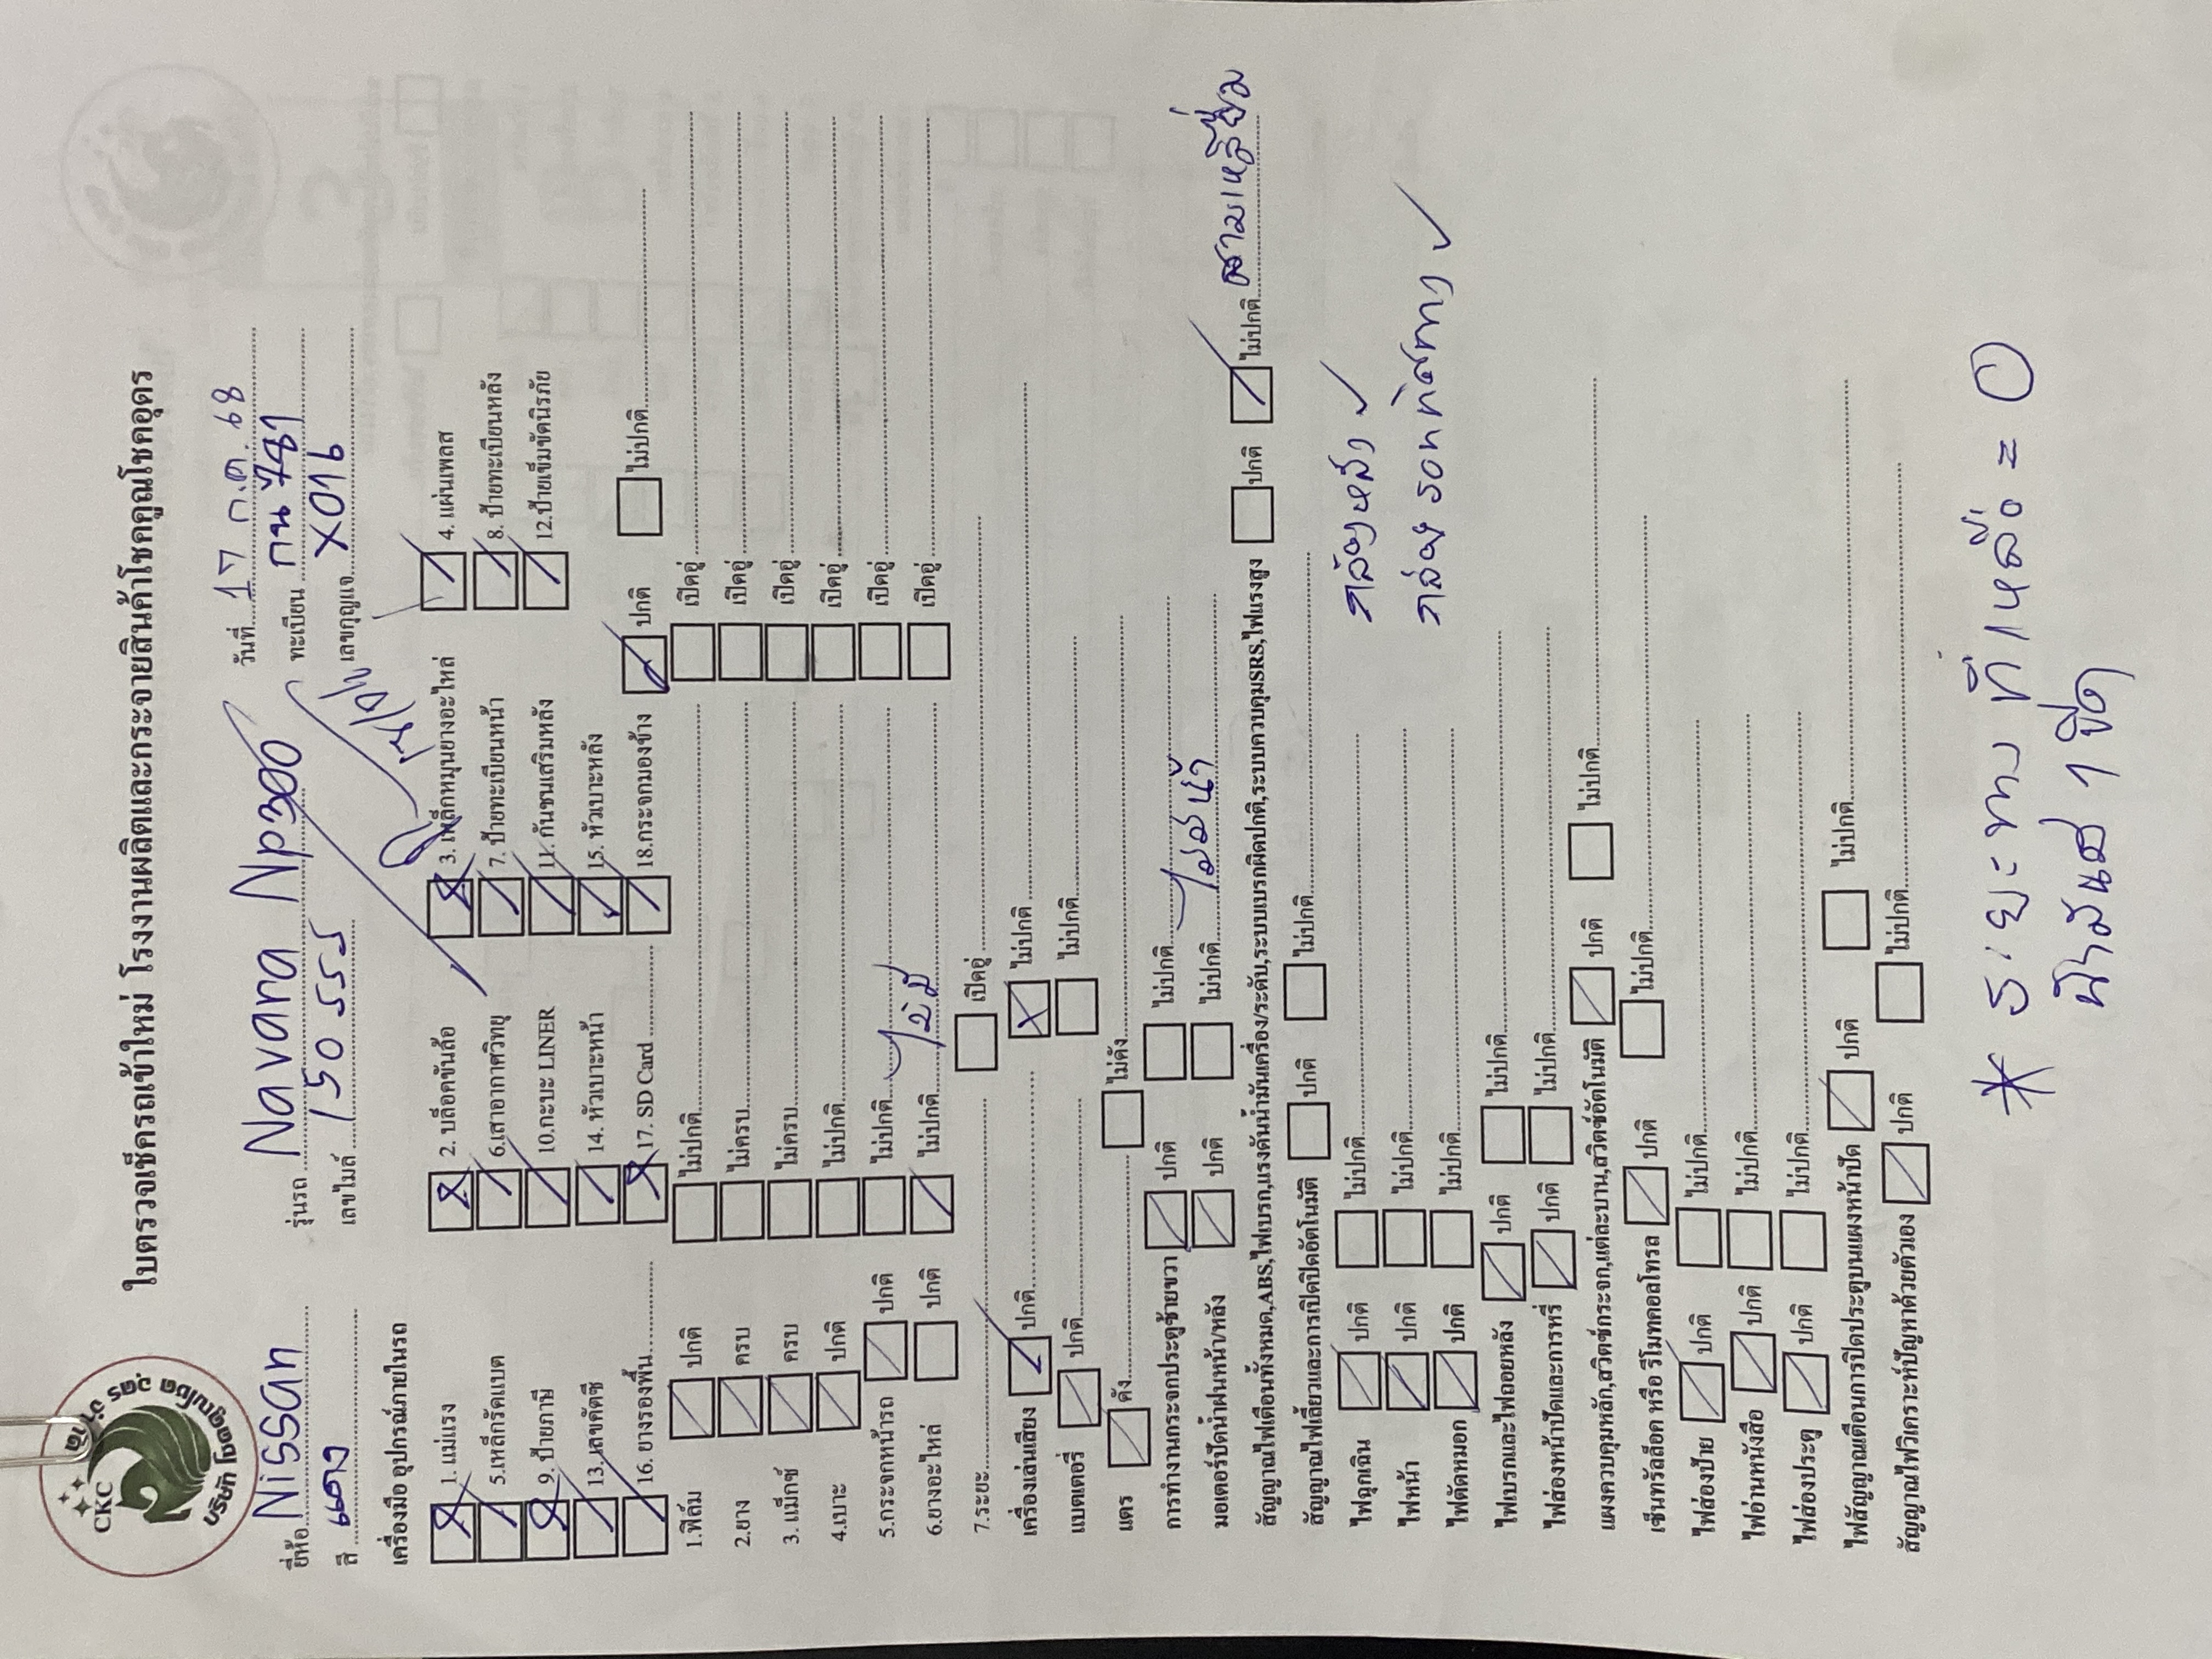 CKC
บริษัท โชคคูณโชค อุดร จำกัด
ใบตรวจเช็ครถเข้าใหม่ โรงงานผลิตและกระจายสินค้าโชคคูณโชคอุดร
ยี่ห้อ Nissan รุ่นรถ Navara Np300 วันที่ 17 ก.ค. 68
สี แดง เลขไมล์ 150 555 ทะเบียน กน 781
เลขกุญแจ X016
เครื่องมือ อุปกรณ์ภายในรถ
1. แม่แรง 2. บล็อคขันล้อ 3. เหล็กหมุนยางอะไหล่ 4. แผ่นเพลส
5.เหล็กรัดแบต 6.เสาอากาศวิทยุ 7. ป้ายทะเบียนหน้า 8. ป้ายทะเบียนหลัง
9. ป้ายภาษี 10.กะบะ LINER 11. กันชนเสริมหลัง 12.ป้ายเข็มขัดนิรภัย
13.เลขคัดซี 14. หัวเบาะหน้า 15. หัวเบาะหลัง
16. ยางรองพื้น 17. SD Card 18.กระจกมองข้าง ปกติ ไม่ปกติ
1.ฟิล์ม ปกติ ไม่ปกติ เปิดอู่
2.ยาง ครบ ไม่ครบ เปิดอู่
3. แม็กซ์ ครบ ไม่ครบ เปิดอู่
4.เบาะ ปกติ ไม่ปกติ เปิดอู่
5.กระจกหน้ารถ ปกติ ไม่ปกติ เปิดอู่
6.ยางอะไหล่ ปกติ ไม่ปกติ ไม่มี เปิดอู่
7.ระยะ เปิดอู่
เครื่องเล่นเสียง ปกติ ไม่ปกติ
แบตเตอรี่ ปกติ ไม่ปกติ
แตร ดัง ไม่ดัง
การทำงานกระจกประตูซ้ายขวา ปกติ ไม่ปกติ
มอเตอร์ปัดน้ำฝนหน้า/หลัง ปกติ ไม่ปกติ
สัญญาณไฟเตือนทั้งหมด,ABS,ไฟเบรก,แรงดันน้ำมันเครื่อง/ระดับ,ระบบเบรกผิดปกติ,ระบบควบคุมSRS,ไฟแรงสูง ปกติ ไม่ปกติ สามเหลี่ยม
สัญญาณไฟเลี้ยวและการเปิดปิดอัตโนมัติ ปกติ ไม่ปกติ
ไฟฉุกเฉิน ปกติ ไม่ปกติ กล้องหลัง ✓
ไฟหน้า ปกติ ไม่ปกติ
ไฟตัดหมอก ปกติ ไม่ปกติ
ไฟเบรกและไฟถอยหลัง ปกติ ไม่ปกติ
ไฟส่องหน้าปัดและการหรี่ ปกติ ไม่ปกติ
แผงควบคุมหลัก,สวิตช์กระจก,แต่ละบาน,สวิตซ์อัตโนมัติ ปกติ ไม่ปกติ
เซ็นทรัลล็อค หรือ รีโมทคอลโทรล ปกติ ไม่ปกติ
ไฟส่องป้าย ปกติ ไม่ปกติ
ไฟอ่านหนังสือ ปกติ ไม่ปกติ
ไฟส่องประตู ปกติ ไม่ปกติ
ไฟสัญญาณเตือนการปิดประตูบนแผงหน้าปัด ปกติ ไม่ปกติ
สัญญาณไฟวิเคราะห์ปัญหาด้วยตัวเอง ปกติ ไม่ปกติ
* ระยะทาง ที่เหลือ = 0
น้ำมันเส 1 ขีด